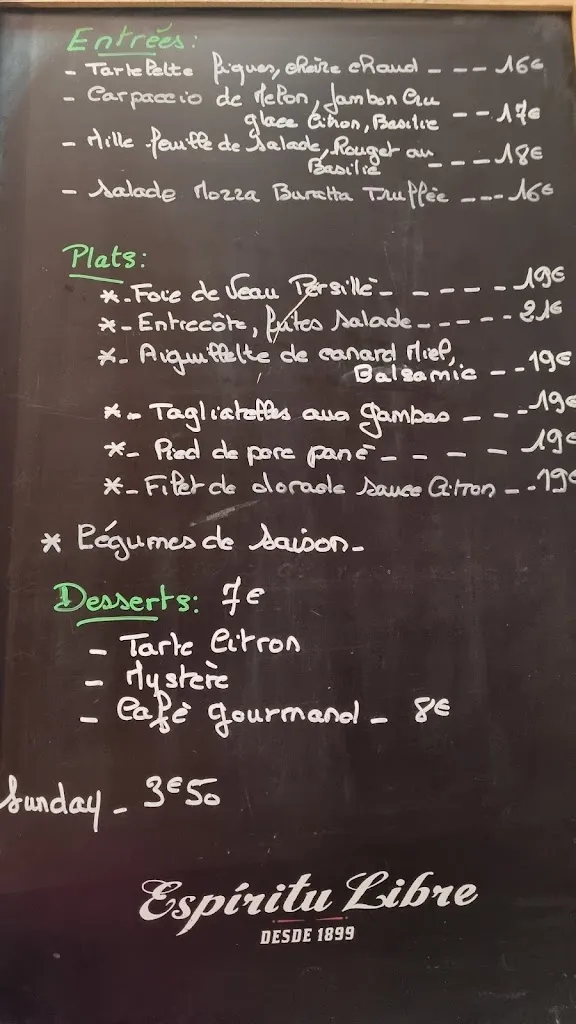 Entrées:
- Tartelette figues, chèvre chaud - - - 16€
- Carpaccio de Melon, Jambon Cru
glace Citron, Basilic - - 17€
- Mille-feuille de Salade, Rouget au
Basilic - - - - 18€
- Salade Mozza Buratta Truffée - - - 16€
Plats:
*- Foie de Veau Persillé - - - - - 19€
*- Entrecôte, frites Salade - - - - - 21€
*- Aiguillette de canard Miel,
Balsamic - - 19€
*- Tagliatelles aux gambas - - - 19€
*- Pied de porc pané - - - - 19€
*- Filet de dorade sauce Citron - - 19€
* Légumes de Saison -
Desserts: 7€
- Tarte Citron
- Mystère
- Café gourmand - 8€
Sunday - 3€50
Espíritu Libre
DESDE 1899